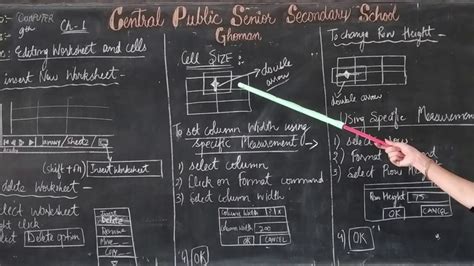 Central Public Senior Secondary School
Ghoman
COMPUTER
Ch-1
Editing Worksheet and cells
insert New Worksheet:-
January / Sheet2
(shift + fn)
Insert Worksheet
Delete Worksheet
select Worksheet
right click
Select Delete option
Insert
Delete
Rename
Move
Cell SIZE:-
double
arrow
To set column Width using
specific Measurement
1) select column
2) Click on Format command
3) Select column Width
Column Width
Column Width 200
OK
CANCEL
4) OK
To change Row Height -
double arrow
Using Specific Measurement
1) select
2) Format
3) Select Row
Row Height
Row Height 75
OK CANCEL
4) OK